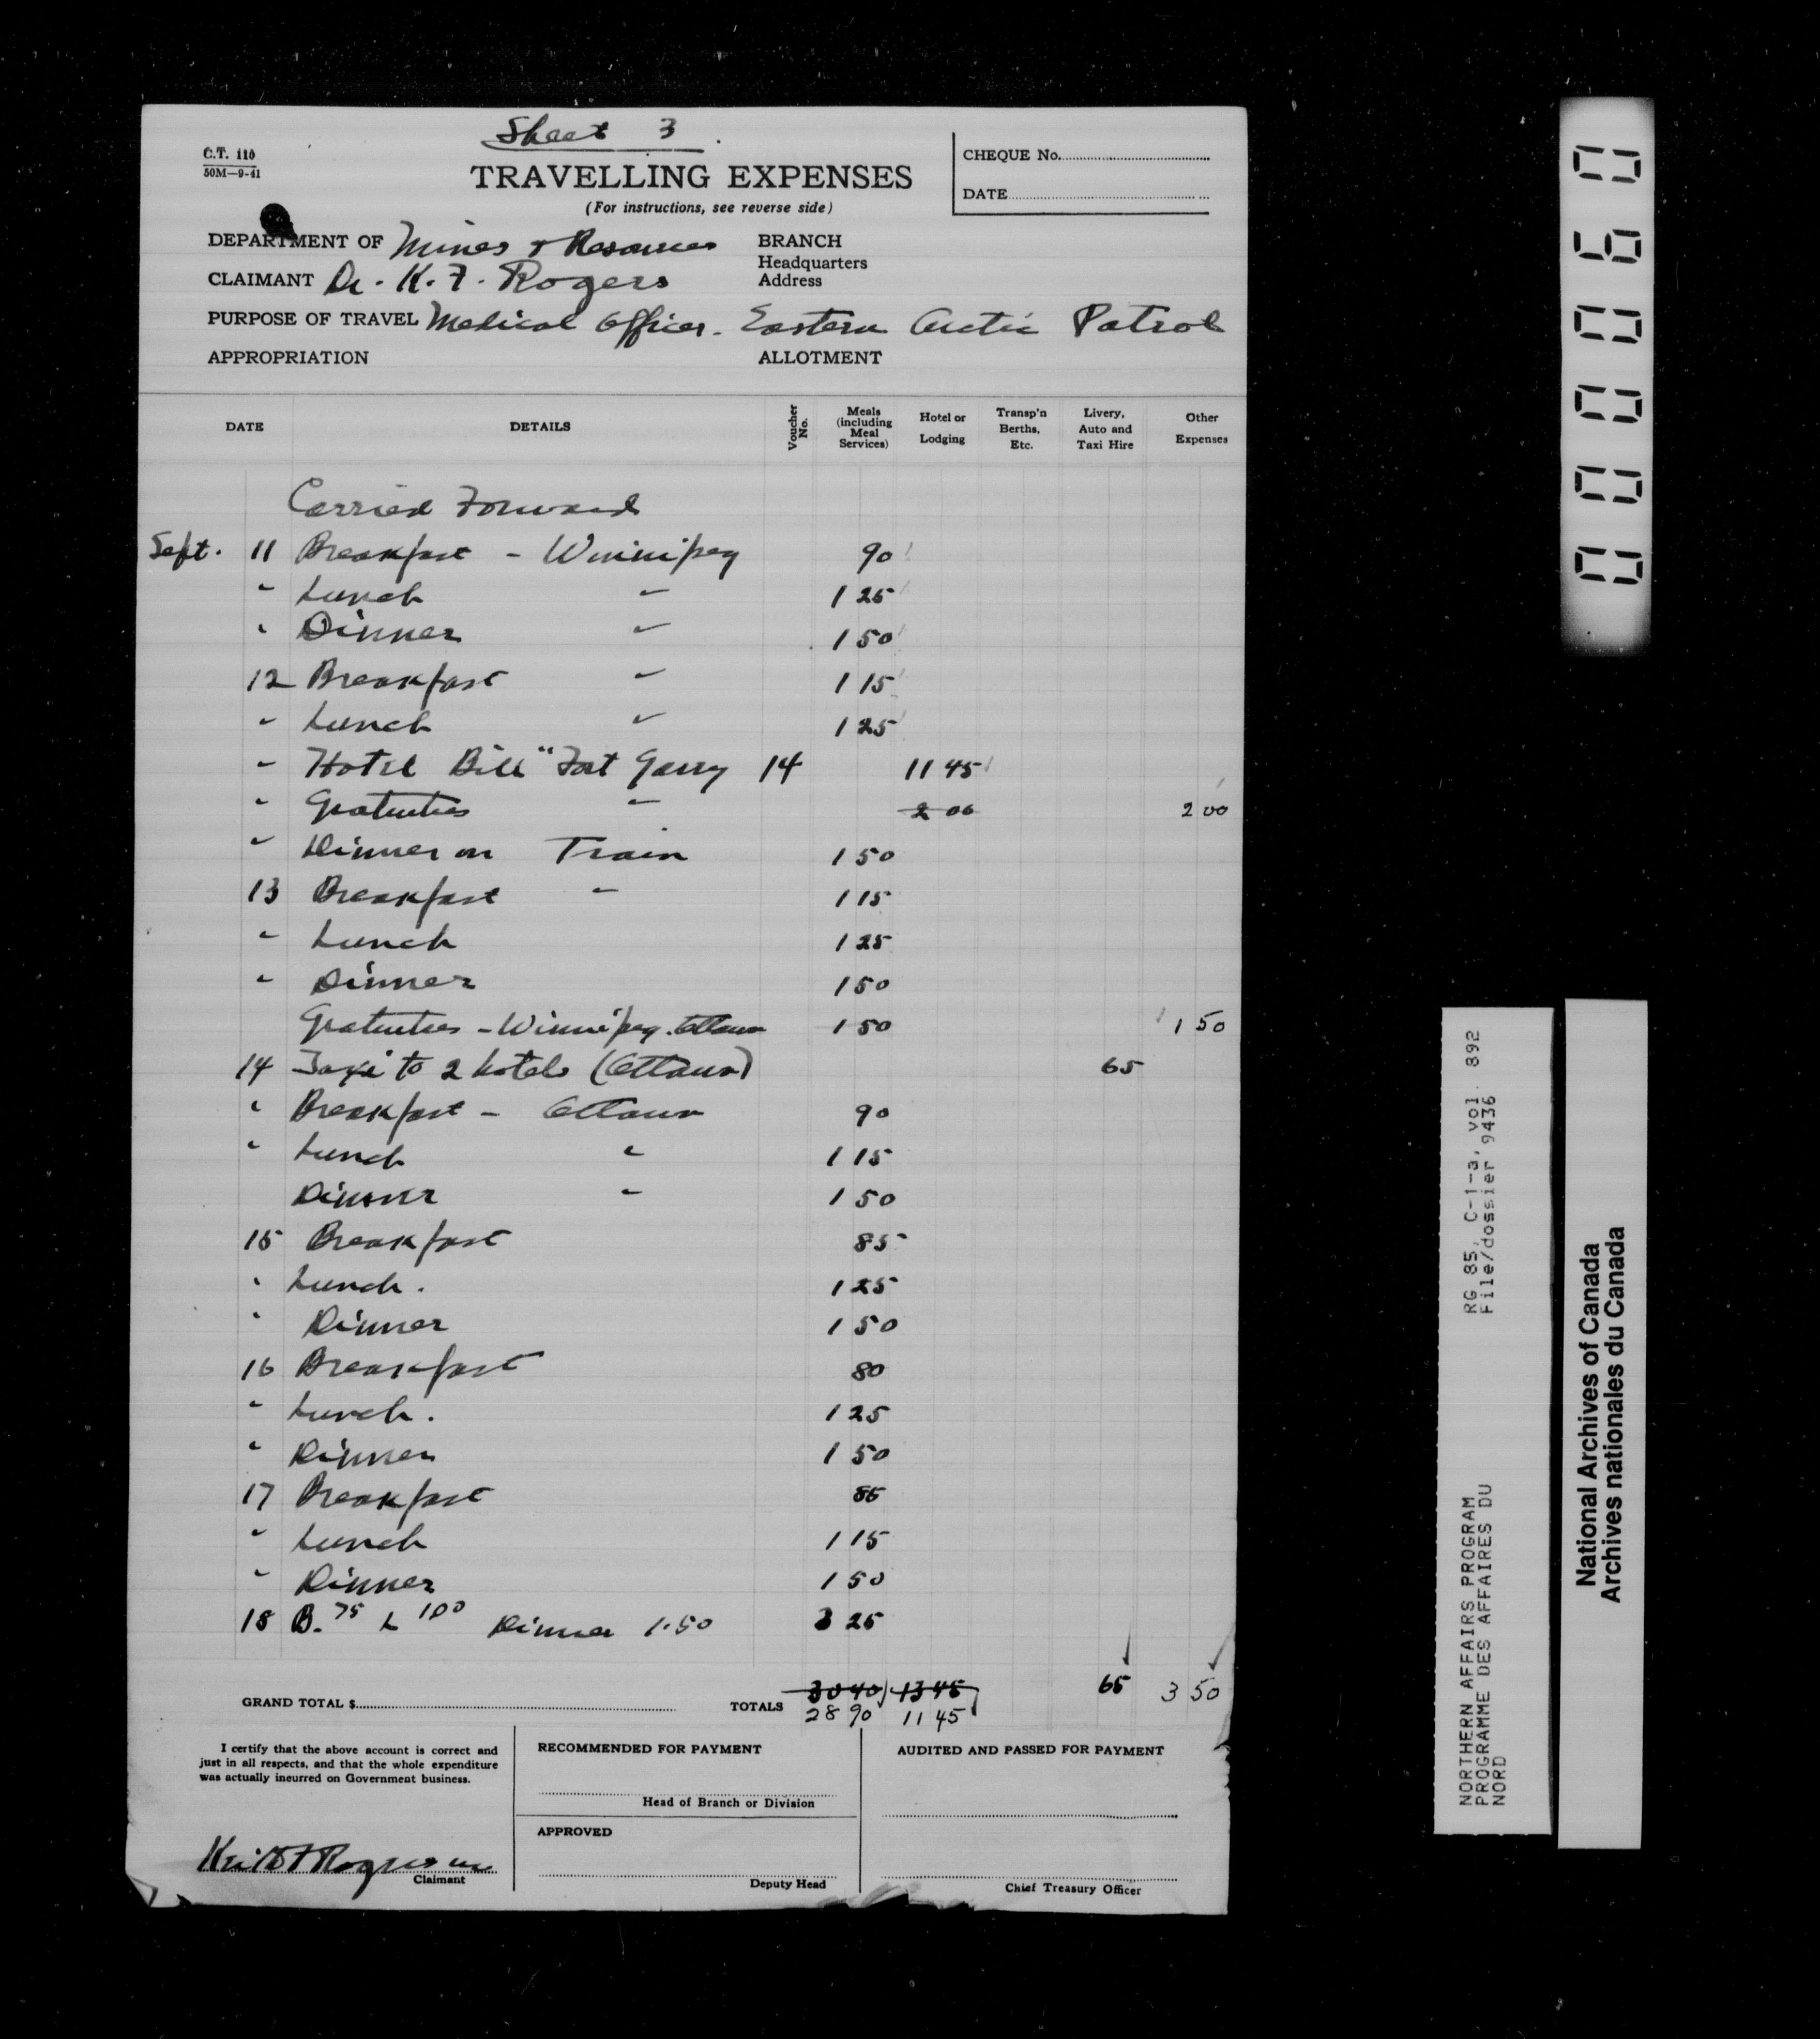 Sheet 3.
C.T. 110
50M—9-41
TRAVELLING EXPENSES
(For instructions, see reverse side)
CHEQUE No.
DATE
DEPARTMENT OF Mines & Resources
BRANCH
CLAIMANT Dr. K. F. Rogers
Headquarters
Address
PURPOSE OF TRAVEL Medical Officer - Eastern Arctic Patrol
APPROPRIATION
ALLOTMENT
DATE DETAILS Voucher No. Meals (including Meal Services) Hotel or Lodging Transp'n Berths, Etc. Livery, Auto and Taxi Hire Other Expenses
Carried Forward
Sept. 11 Breakfast - Winnipeg 90
" Lunch " 1 25
" Dinner " 1 50
12 Breakfast " 1 15
" Lunch " 1 25
" Hotel Bill "Fort Garry 14 11 45
" Gratuities " 2 00 2 00
" Dinner on Train 1 50
13 Breakfast " 1 15
" Lunch 1 25
" Dinner 1 50
Gratuities - Winnipeg. Ottawa 1 50 1 50
14 Taxi to 2 hotels (Ottawa) 65
" Breakfast - Ottawa 90
" Lunch " 1 15
Dinner " 1 50
15 Breakfast 85
" Lunch. 1 25
" Dinner 1 50
16 Breakfast 80
" Lunch. 1 25
" Dinner 1 50
17 Breakfast 85
" Lunch 1 15
" Dinner 1 50
18 B. 75 L 100 Dinner 1.50 3 25
GRAND TOTAL $ TOTALS 30 40 13 45 65 3 50
28 90 11 45
I certify that the above account is correct and
just in all respects, and that the whole expenditure
was actually incurred on Government business.
Keith F Rogers
Claimant
RECOMMENDED FOR PAYMENT
Head of Branch or Division
APPROVED
Deputy Head
AUDITED AND PASSED FOR PAYMENT
Chief Treasury Officer
000060
RG 85, C-1-a, vol. 892
File/dossier 9436
NORTHERN AFFAIRS PROGRAM
PROGRAMME DES AFFAIRES DU
NORD
National Archives of Canada
Archives nationales du Canada